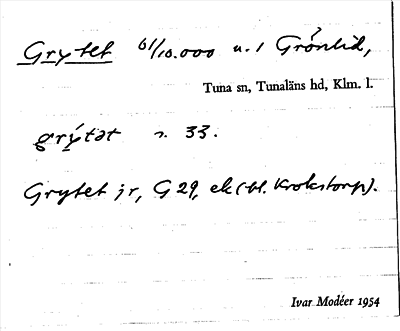 Grytet 61/10.000 u. 1 Grönlid,
Tuna sn, Tunaläns hd, Klm. l.
grýtət n. 33.
Grytet jr, G 29, ek (bl. Krokstorp).
Ivar Modéer 1954